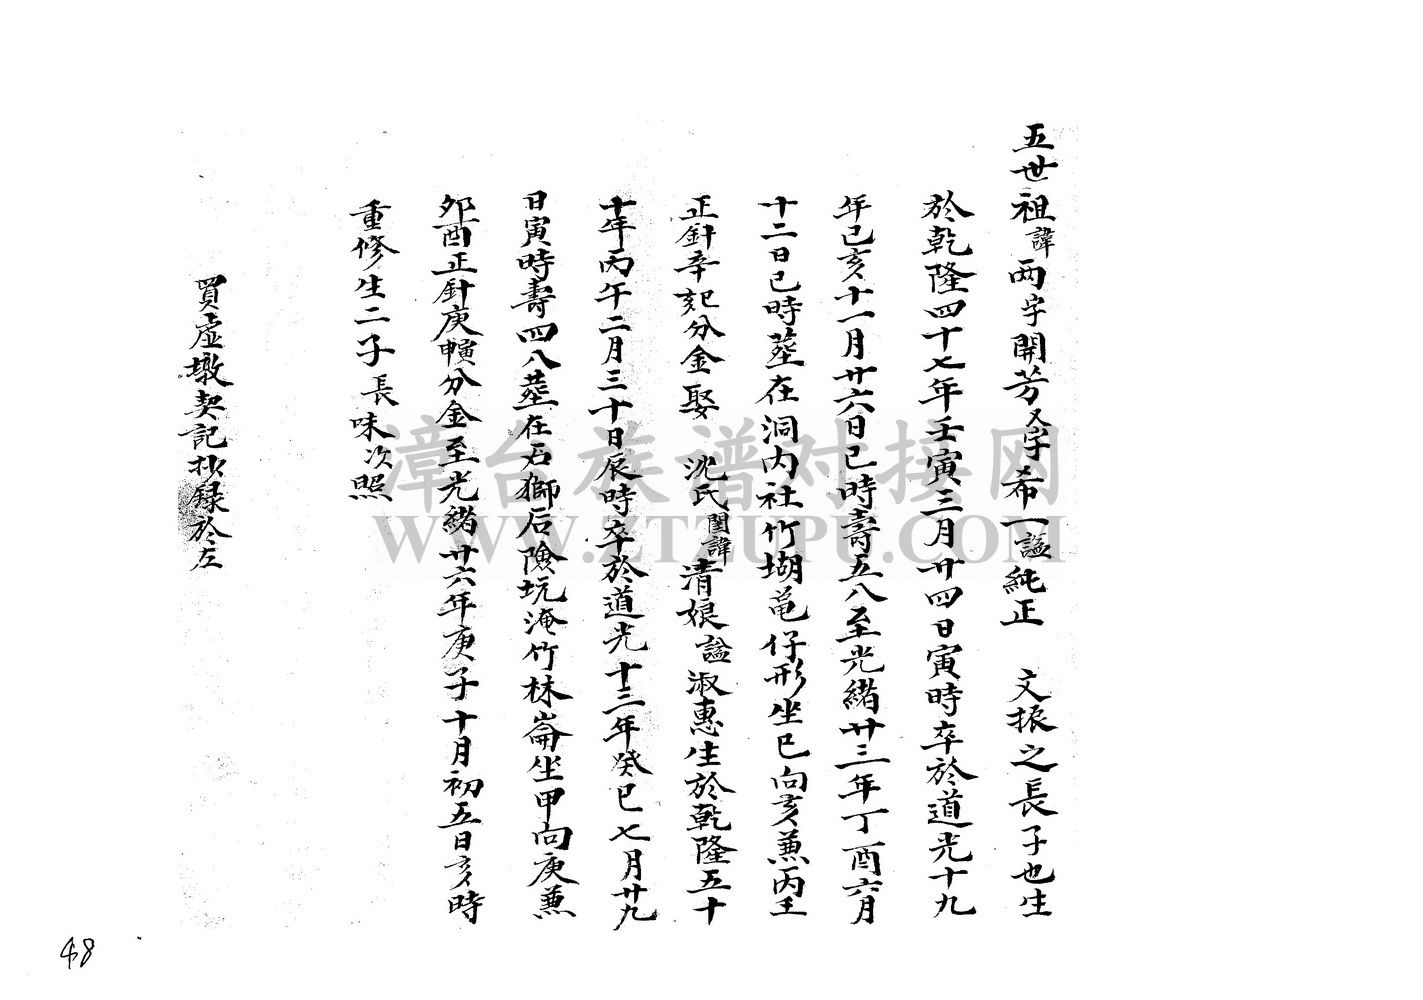 五世祖諱兩字開芳又字希一諡純正　文振之長子也生
於乾隆四十七年壬寅三月廿四日寅時卒於道光十九
年己亥十一月廿六日巳時壽五八至光緒廿三年丁酉六月
十二日巳時塟在洞内社竹坳黾仔形坐巳向亥兼丙壬
正針辛分金娶　沈氏閨諱清娘諡淑惠生於乾隆五十
十年丙午二月三十日辰時卒於道光十三年癸巳七月廿九
日寅時壽四八塟在石獅后險坑淹竹林崙坐甲向庚兼
卯酉正針庚寅分金至光緒廿六年庚子十月初五日亥時
重修生二子長味次照
買虛墩契記抄錄於左
漳台族谱对接网
WWW.ZTZUPU.COM
48